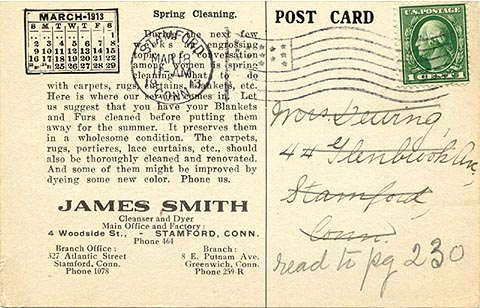 MARCH-1913
S M T W T F S
1
2 3 4 5 6 7 8
9 10 11 12 13 14 15
16 17 18 19 20 21 22
25 26 27 28 29
Spring Cleaning.
During the next few
weeks the engrossing
topic of conversation
among women is spring
cleaning—what to do
with carpets, rugs, curtains, blankets, etc.
Here is where our work comes in. Let
us suggest that you have your Blankets
and Furs cleaned before putting them
away for the summer. It preserves them
in a wholesome condition. The carpets,
rugs, portieres, lace curtains, etc., should
also be thoroughly cleaned and renovated.
And some of them might be improved by
dyeing some new color. Phone us.
JAMES SMITH
Cleanser and Dyer
Main Office and Factory:
4 Woodside St., - STAMFORD, CONN.
Phone 464
Branch Office:
327 Atlantic Street
Stamford, Conn.
Phone 1078
Branch:
8 E. Putnam Ave.
Greenwich, Conn.
Phone 259-R
STAMFORD
MAR 18
AM
CONN.
POST CARD
U.S. POSTAGE
1 CENT 1
Mrs. Dewing,
44 Glenbrook Ave,
Stamford,
Conn.
read to pg 230